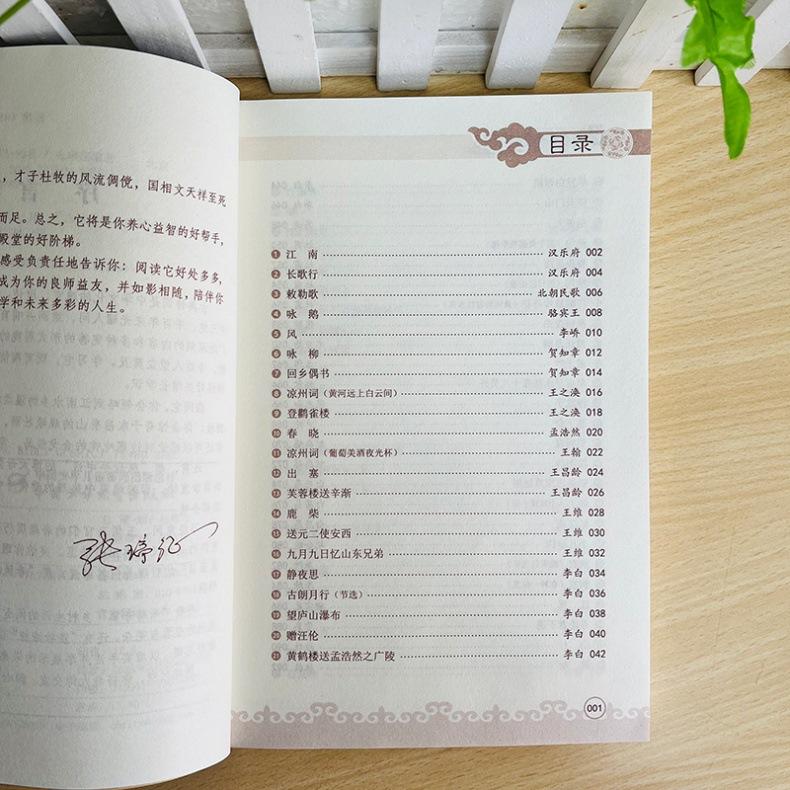 ，才子杜牧的风流倜傥，国相文天祥至死
而足。总之，它将是你养心益智的好帮手，
殿堂的好阶梯。
感受负责任地告诉你：阅读它好处多多，
成为你的良师益友，并如影相随，陪伴你
学和未来多彩的人生。
目录
1 江 南 汉乐府 002
2 长歌行 汉乐府 004
3 敕勒歌 北朝民歌 006
4 咏 鹅 骆宾王 008
5 风 李峤 010
6 咏 柳 贺知章 012
7 回乡偶书 贺知章 014
8 凉州词（黄河远上白云间） 王之涣 016
9 登鹳雀楼 王之涣 018
10 春 晓 孟浩然 020
11 凉州词（葡萄美酒夜光杯） 王翰 022
12 出 塞 王昌龄 024
13 芙蓉楼送辛渐 王昌龄 026
14 鹿 柴 王维 028
15 送元二使安西 王维 030
16 九月九日忆山东兄弟 王维 032
17 静夜思 李白 034
18 古朗月行（节选） 李白 036
19 望庐山瀑布 李白 038
20 赠汪伦 李白 040
21 黄鹤楼送孟浩然之广陵 李白 042
001